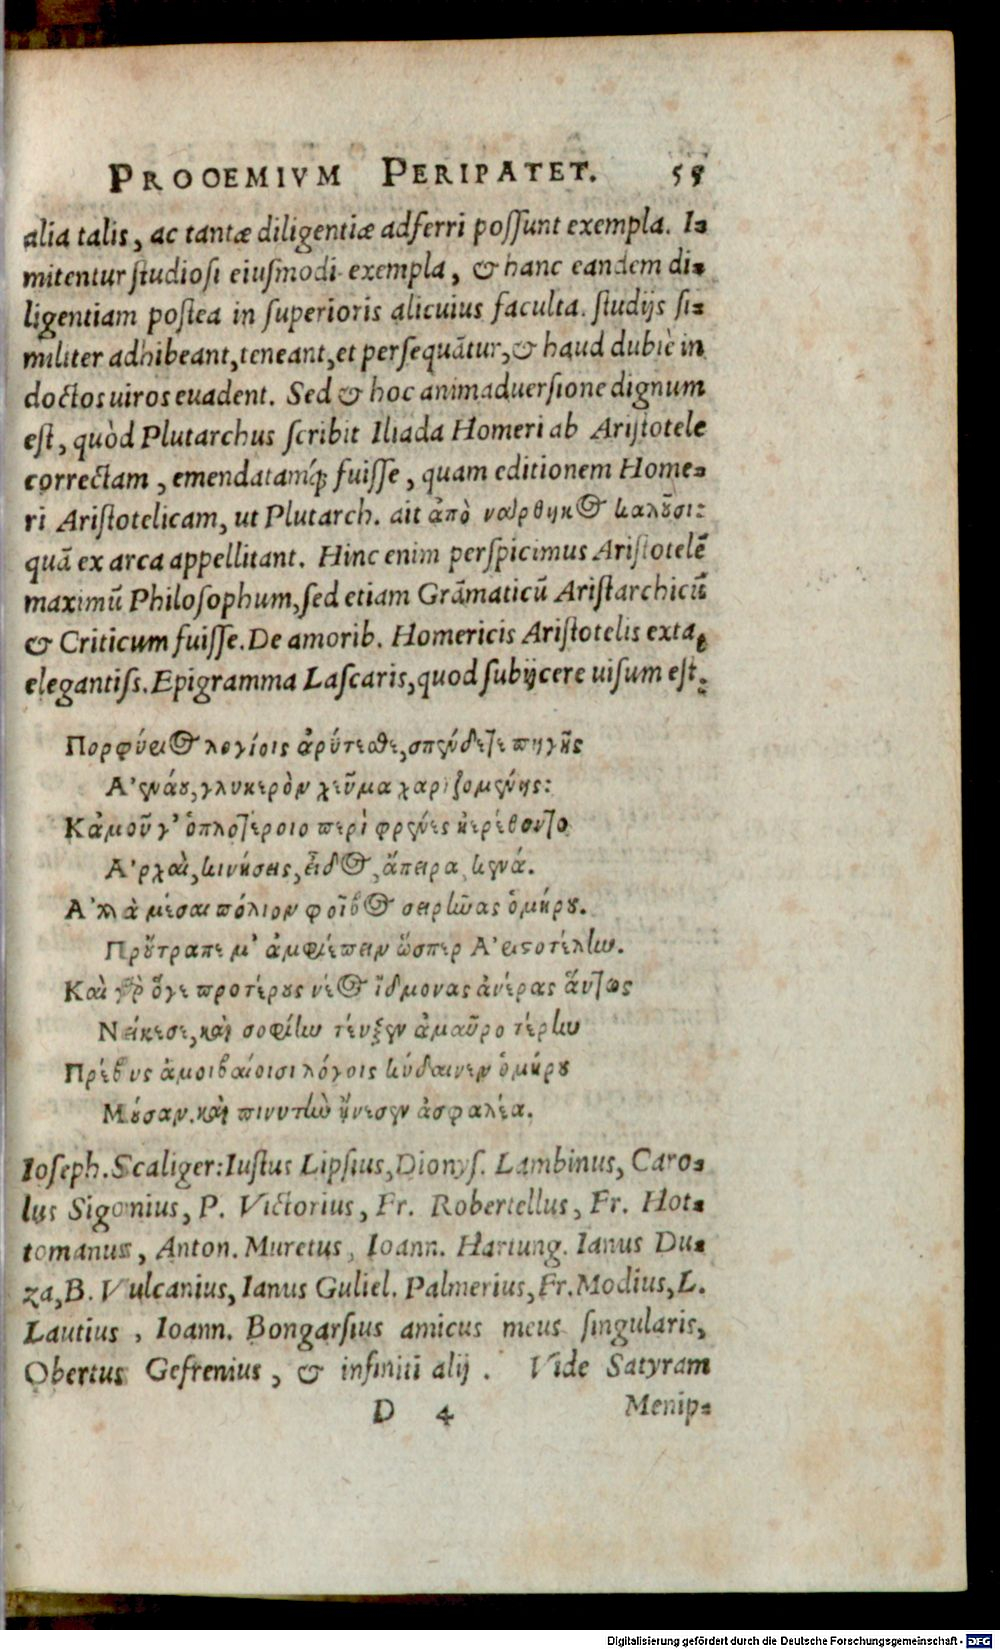 PROOEMIVM PERIPATET. 55
alia talis, ac tantæ diligentiæ adferri possunt exempla. I-
mitentur studiosi eiusmodi exempla, & hanc eandem di-
ligentiam postea in superioris alicuius faculta. studijs si-
militer adhibeant, teneant, et persequātur, & haud dubiè in
doctos uiros euadent. Sed & hoc animaduersione dignum
est, quòd Plutarchus scribit Iliada Homeri ab Aristotele
correctam, emendatamq́; fuisse, quam editionem Home-
ri Aristotelicam, ut Plutarch. ait ἀπὸ νάρθηκος καλοῦσι:
quā ex arca appellitant. Hinc enim perspicimus Aristotelē
maximū Philosophum, sed etiam Grāmaticū Aristarchicū
& Criticum fuisse. De amorib. Homericis Aristotelis exta,
elegantiss. Epigramma Lascaris, quod subijcere uisum est.
Πορφύριος λογίοις ἀρύτεσθε, σπένδετε πηγῆς
Ἀενάου, γλυκερὸν χεῦμα χαριζομένης:
Κἀμοῦ γ' ὁπλοτέροιο περὶ φρένες ἠερέθοντο
Ἀρχαὶ, κινήσεις, εἶδος, ἄπειρα, κενά.
Ἀλλὰ μέσαι πόλιον φοῖβος σειρῶας ὁμήρου.
Προὔτραπε μ' ἀμφιέπειν ὥσπερ Ἀριστοτέλην.
Καὶ γὰρ ὅγε προτέρους νέος ἴδμονας ἀνέρας ἄντως
Νείκεσε, καὶ σοφίην τεύξεν ἀμαυροτέρην
Πρέσβυς ἀμοιβαίοισι λόγοις κύδαινεν ὁμήρου
Μοῦσαν. καὶ πινυτὴν ᾔνεσεν ἀσφαλέα.
Ioseph. Scaliger: Iustus Lipsius, Dionys. Lambinus, Caro-
lus Sigonius, P. Victorius, Fr. Robertellus, Fr. Hot-
tomanus, Anton. Muretus, Ioann. Hartung. Ianus Du-
za, B. Vulcanius, Ianus Guliel. Palmerius, Fr. Modius, L.
Lautius, Ioann. Bongarsius amicus meus singularis,
Obertus Gefrenius, & infiniti alij. Vide Satyram
D 4 Menip-
Digitalisierung gefördert durch die Deutsche Forschungsgemeinschaft - DFG